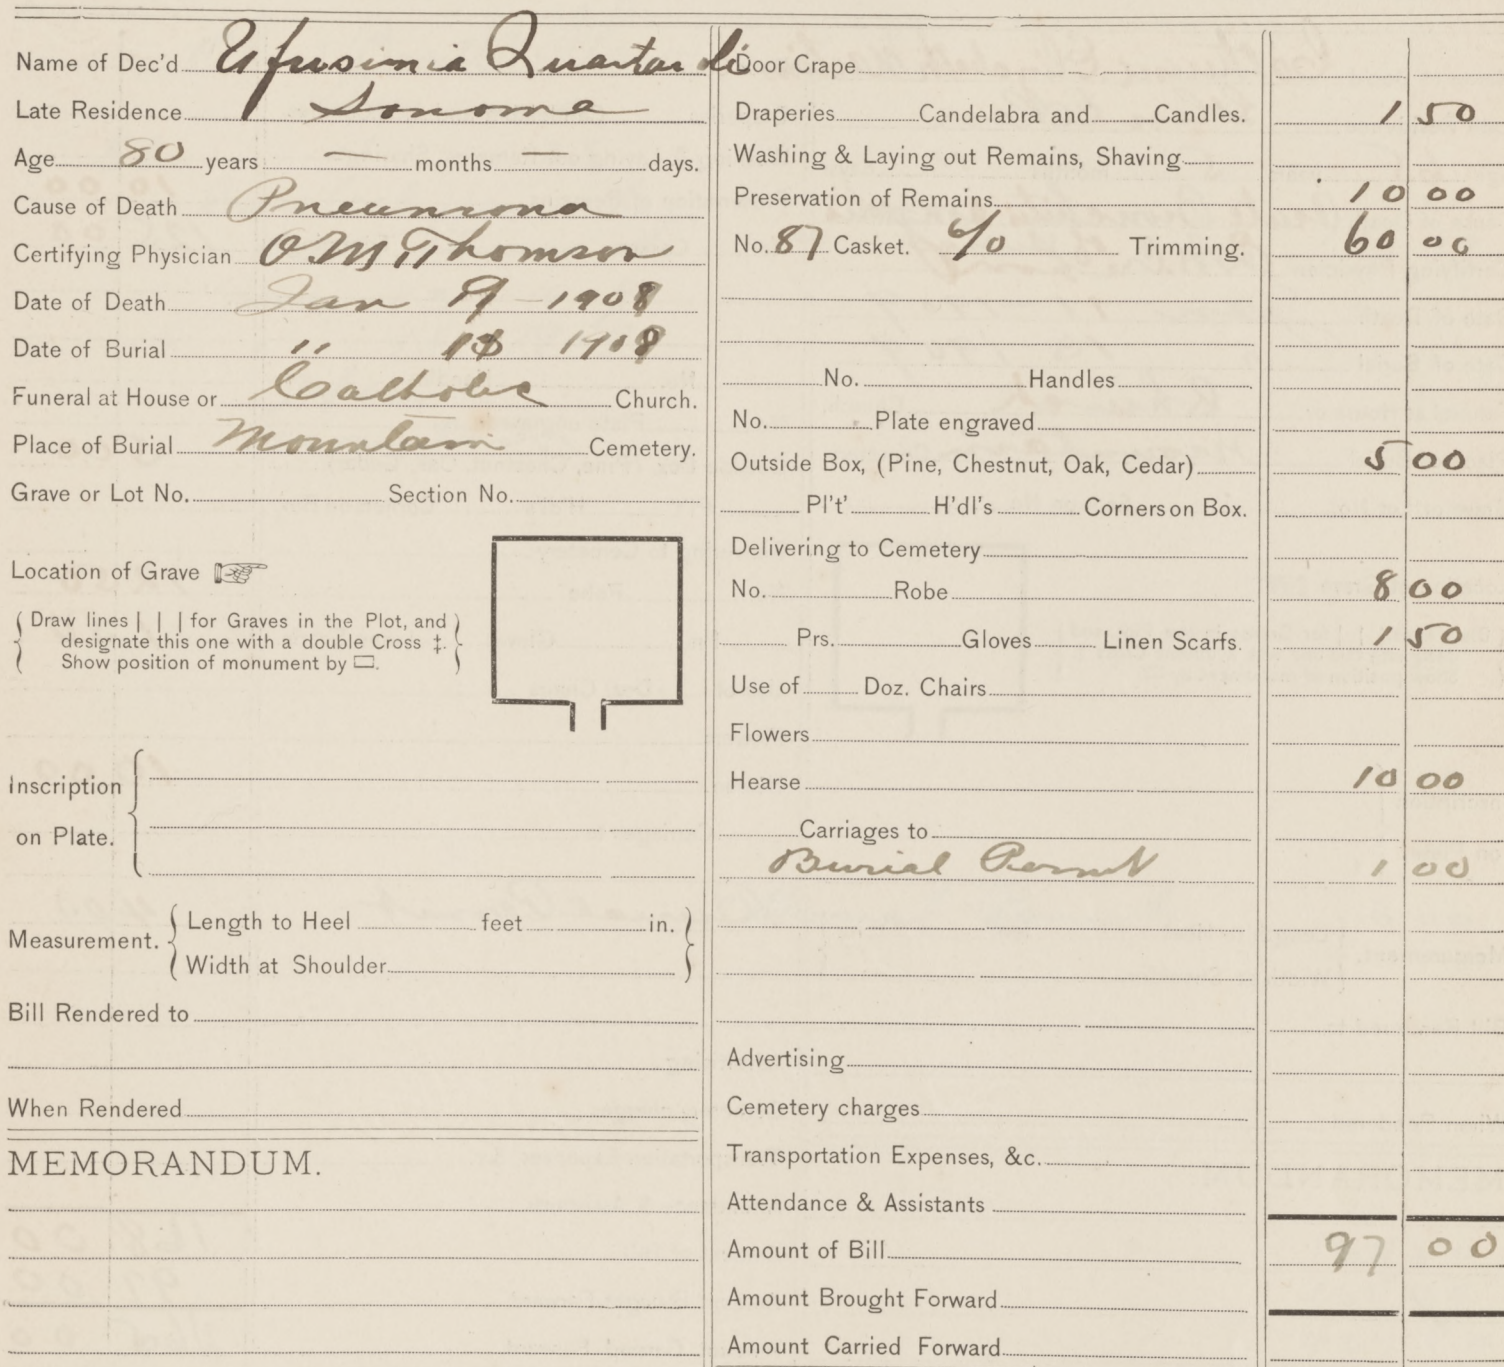 Name of Dec'd Ufrusimia Quartaroli
Late Residence Sonoma
Age 80 years — months — days.
Cause of Death Pneumonia
Certifying Physician O M Thomson
Date of Death Jan 9 - 1908
Date of Burial " 1908
Funeral at House or Catholic Church.
Place of Burial Mountain Cemetery.
Grave or Lot No. Section No.
Location of Grave
Draw lines | | | for Graves in the Plot, and
designate this one with a double Cross ‡.
Show position of monument by ▭.
Inscription
on Plate.
Measurement. Length to Heel feet in.
Width at Shoulder
Bill Rendered to
When Rendered
MEMORANDUM.
Door Crape
Draperies Candelabra and Candles. 1 50
Washing & Laying out Remains, Shaving
Preservation of Remains 10 00
No. 87 Casket. 6/0 Trimming. 60 00
No. Handles
No. Plate engraved
Outside Box, (Pine, Chestnut, Oak, Cedar) 5 00
Pl't' H'dl's Corners on Box.
Delivering to Cemetery
No. Robe 8 00
Prs. Gloves Linen Scarfs. 1 50
Use of Doz. Chairs
Flowers
Hearse 10 00
Carriages to
Burial Permit 1 00
Advertising
Cemetery charges
Transportation Expenses, &c.
Attendance & Assistants
Amount of Bill 97 00
Amount Brought Forward
Amount Carried Forward